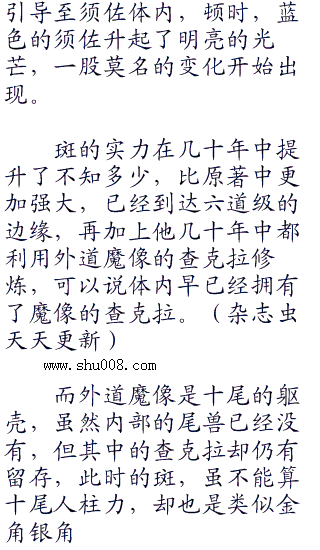 引导至须佐体内，顿时，蓝
色的须佐升起了明亮的光
芒，一股莫名的变化开始出
现。
斑的实力在几十年中提
升了不知多少，比原著中更
加强大，已经到达六道级的
边缘，再加上他几十年中都
利用外道魔像的查克拉修
炼，可以说体内早已经拥有
了魔像的查克拉。（杂志虫
天天更新）
www.shu008.com
而外道魔像是十尾的躯
壳，虽然内部的尾兽已经没
有，但其中的查克拉却仍有
留存，此时的斑，虽不能算
十尾人柱力，却也是类似金
角银角